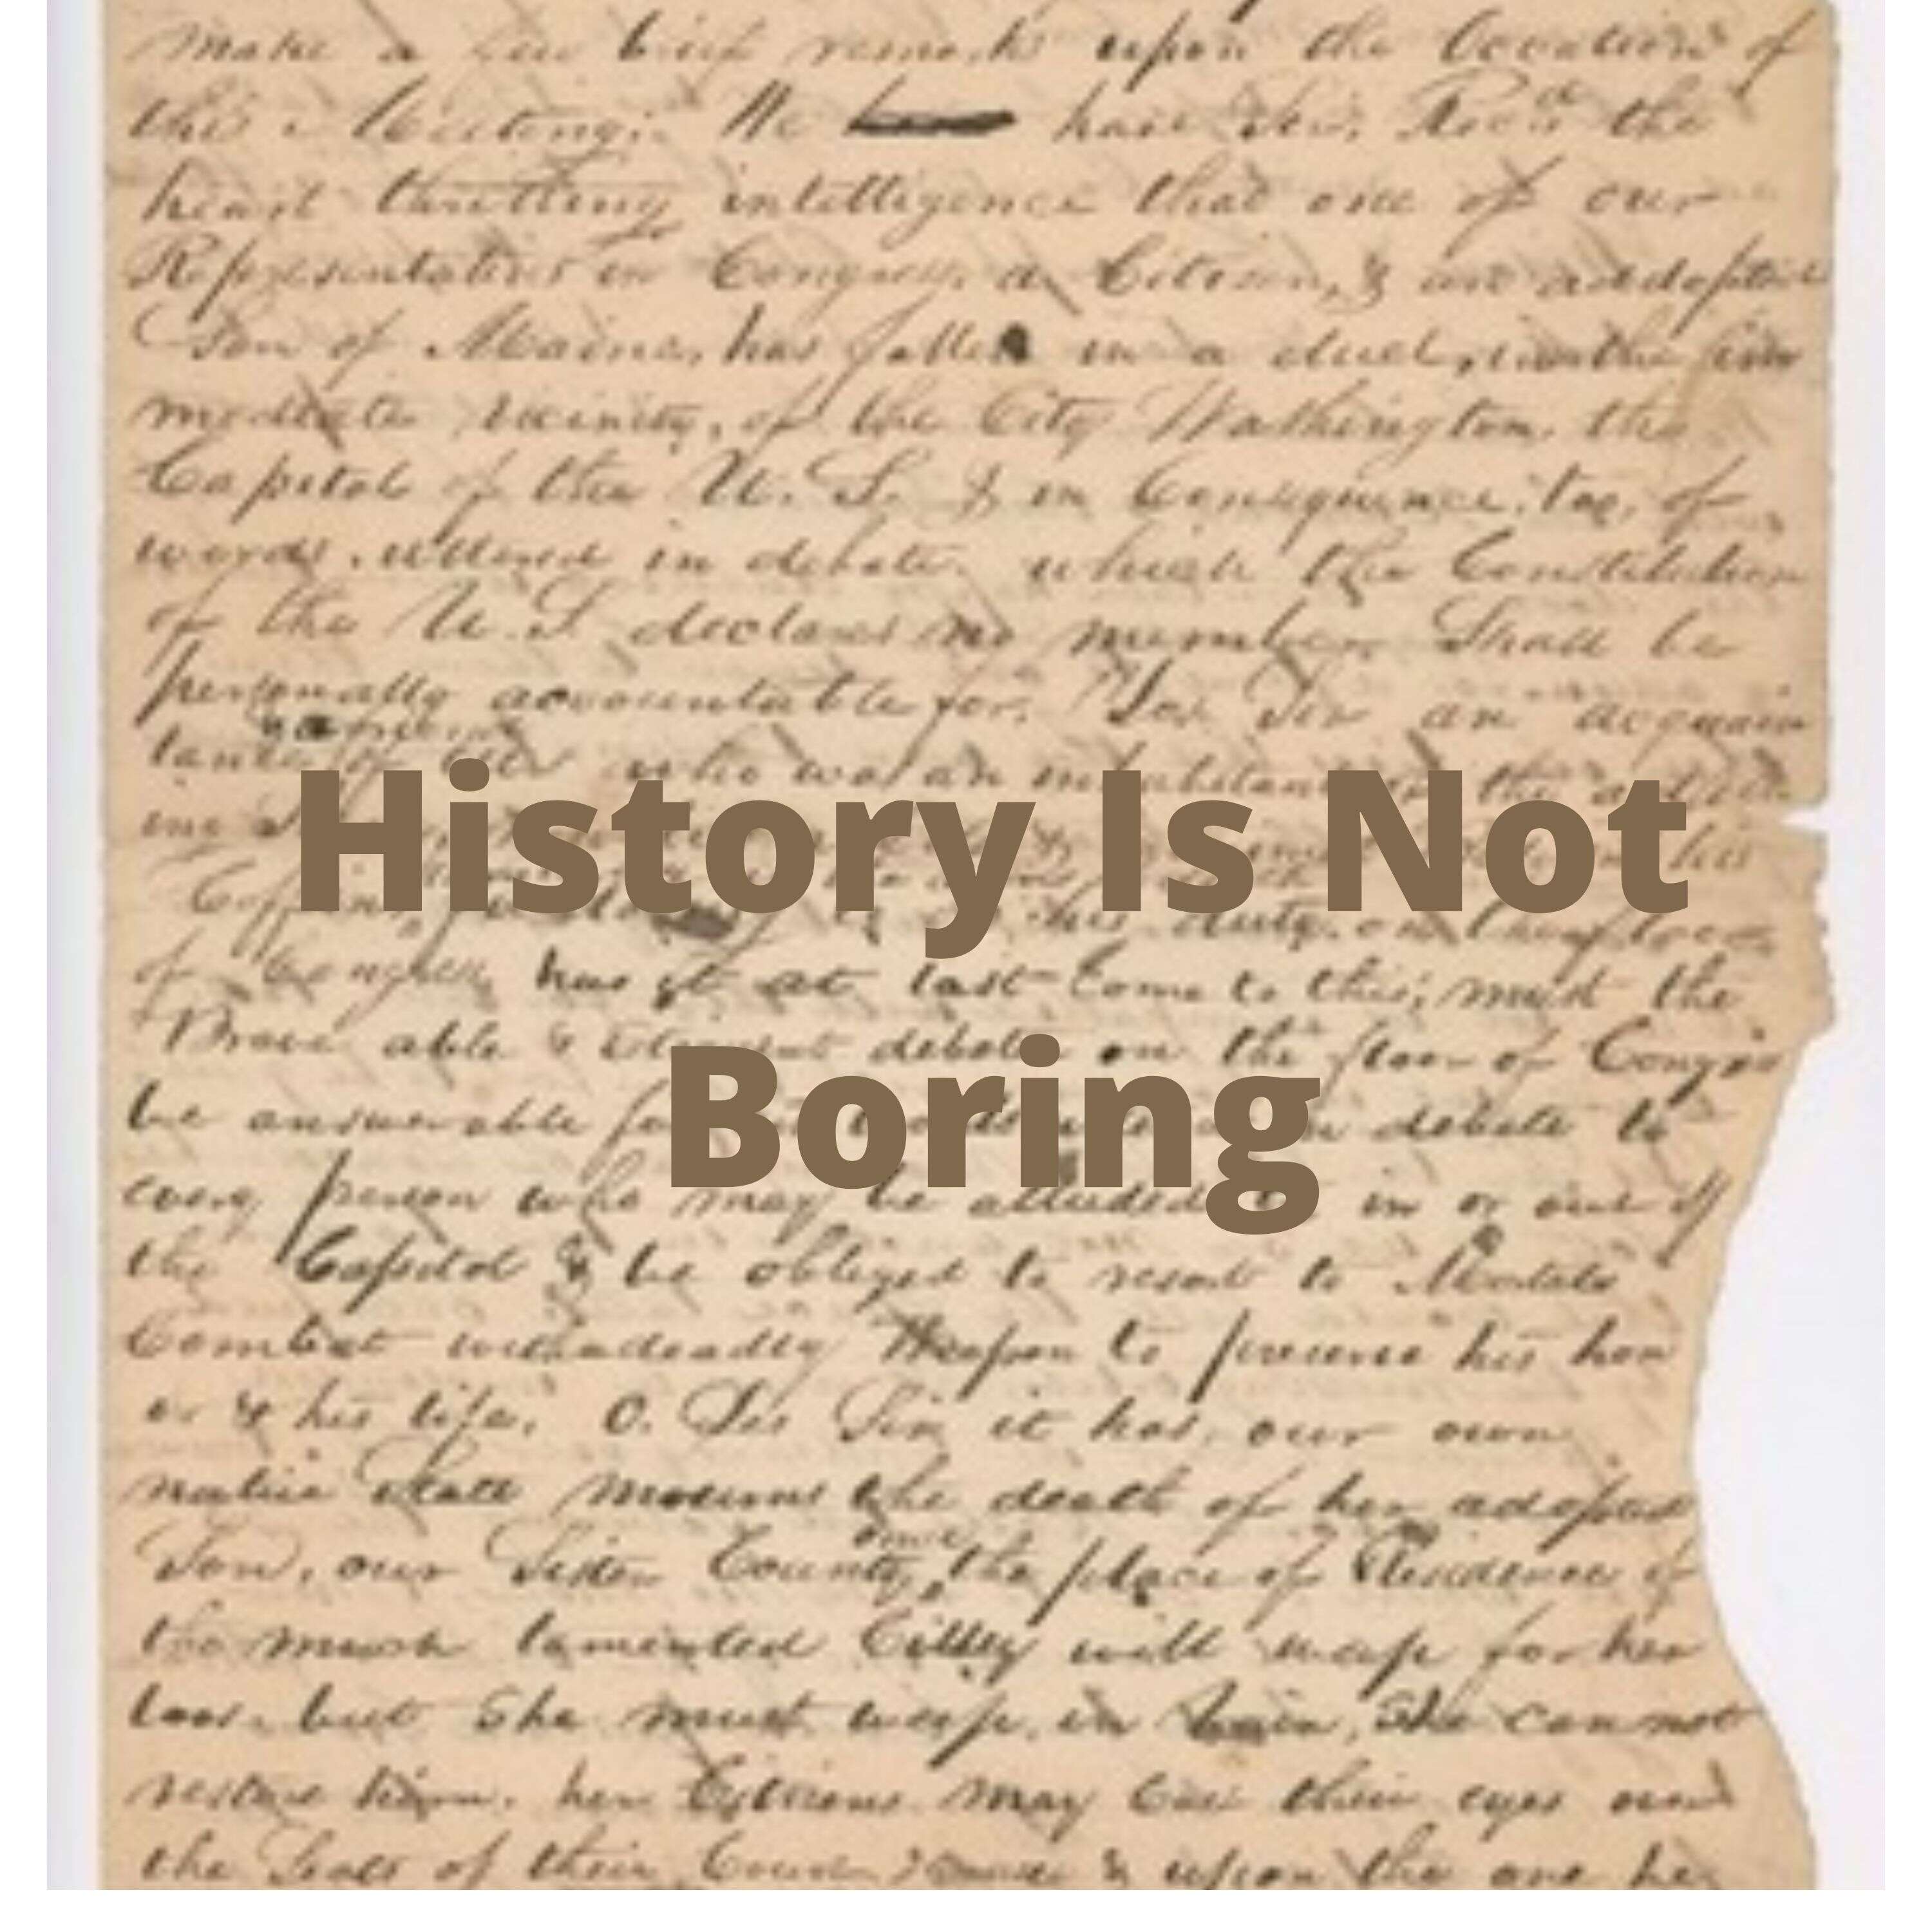 make a few brief remarks upon the location of
this Meeting. We have Sir, Recd the
heart thrilling intelligence that one of our
Representatives in Congress, a Citizen, & an addopted
Son of Maine, has fallen in a duel, in the im
mediate vicinity, of the City Washington, the
Capitol of the U. S. & in Consequence, too, of
words uttered in debate, which the Constitution
of the U. S. declares no member Shall be
personally accountable for. Yes Sir an acquain
tance of who was an inhabitant the
History Is Not
his duty on the floor
of Congress, has it at last Come to this, must the
Brave able & Eloquent debater on the floor of Congress
Boring
be answerable for debate to
every person who may be alluded to in or out of
the Capitol & be obliged to resort to Mortal
Combat with deadly Weapon to preserve his hon
or & his life. O. Yes Sir it has, our own
native State mourns the death of her adopted
Son, our Sister County, once the place of Residence of
the much lamented Cilley will weep for her
loss, but She must weep, in Vain, She cannot
restore him. her Citizens may their eyes
the Seat of their & upon the one he